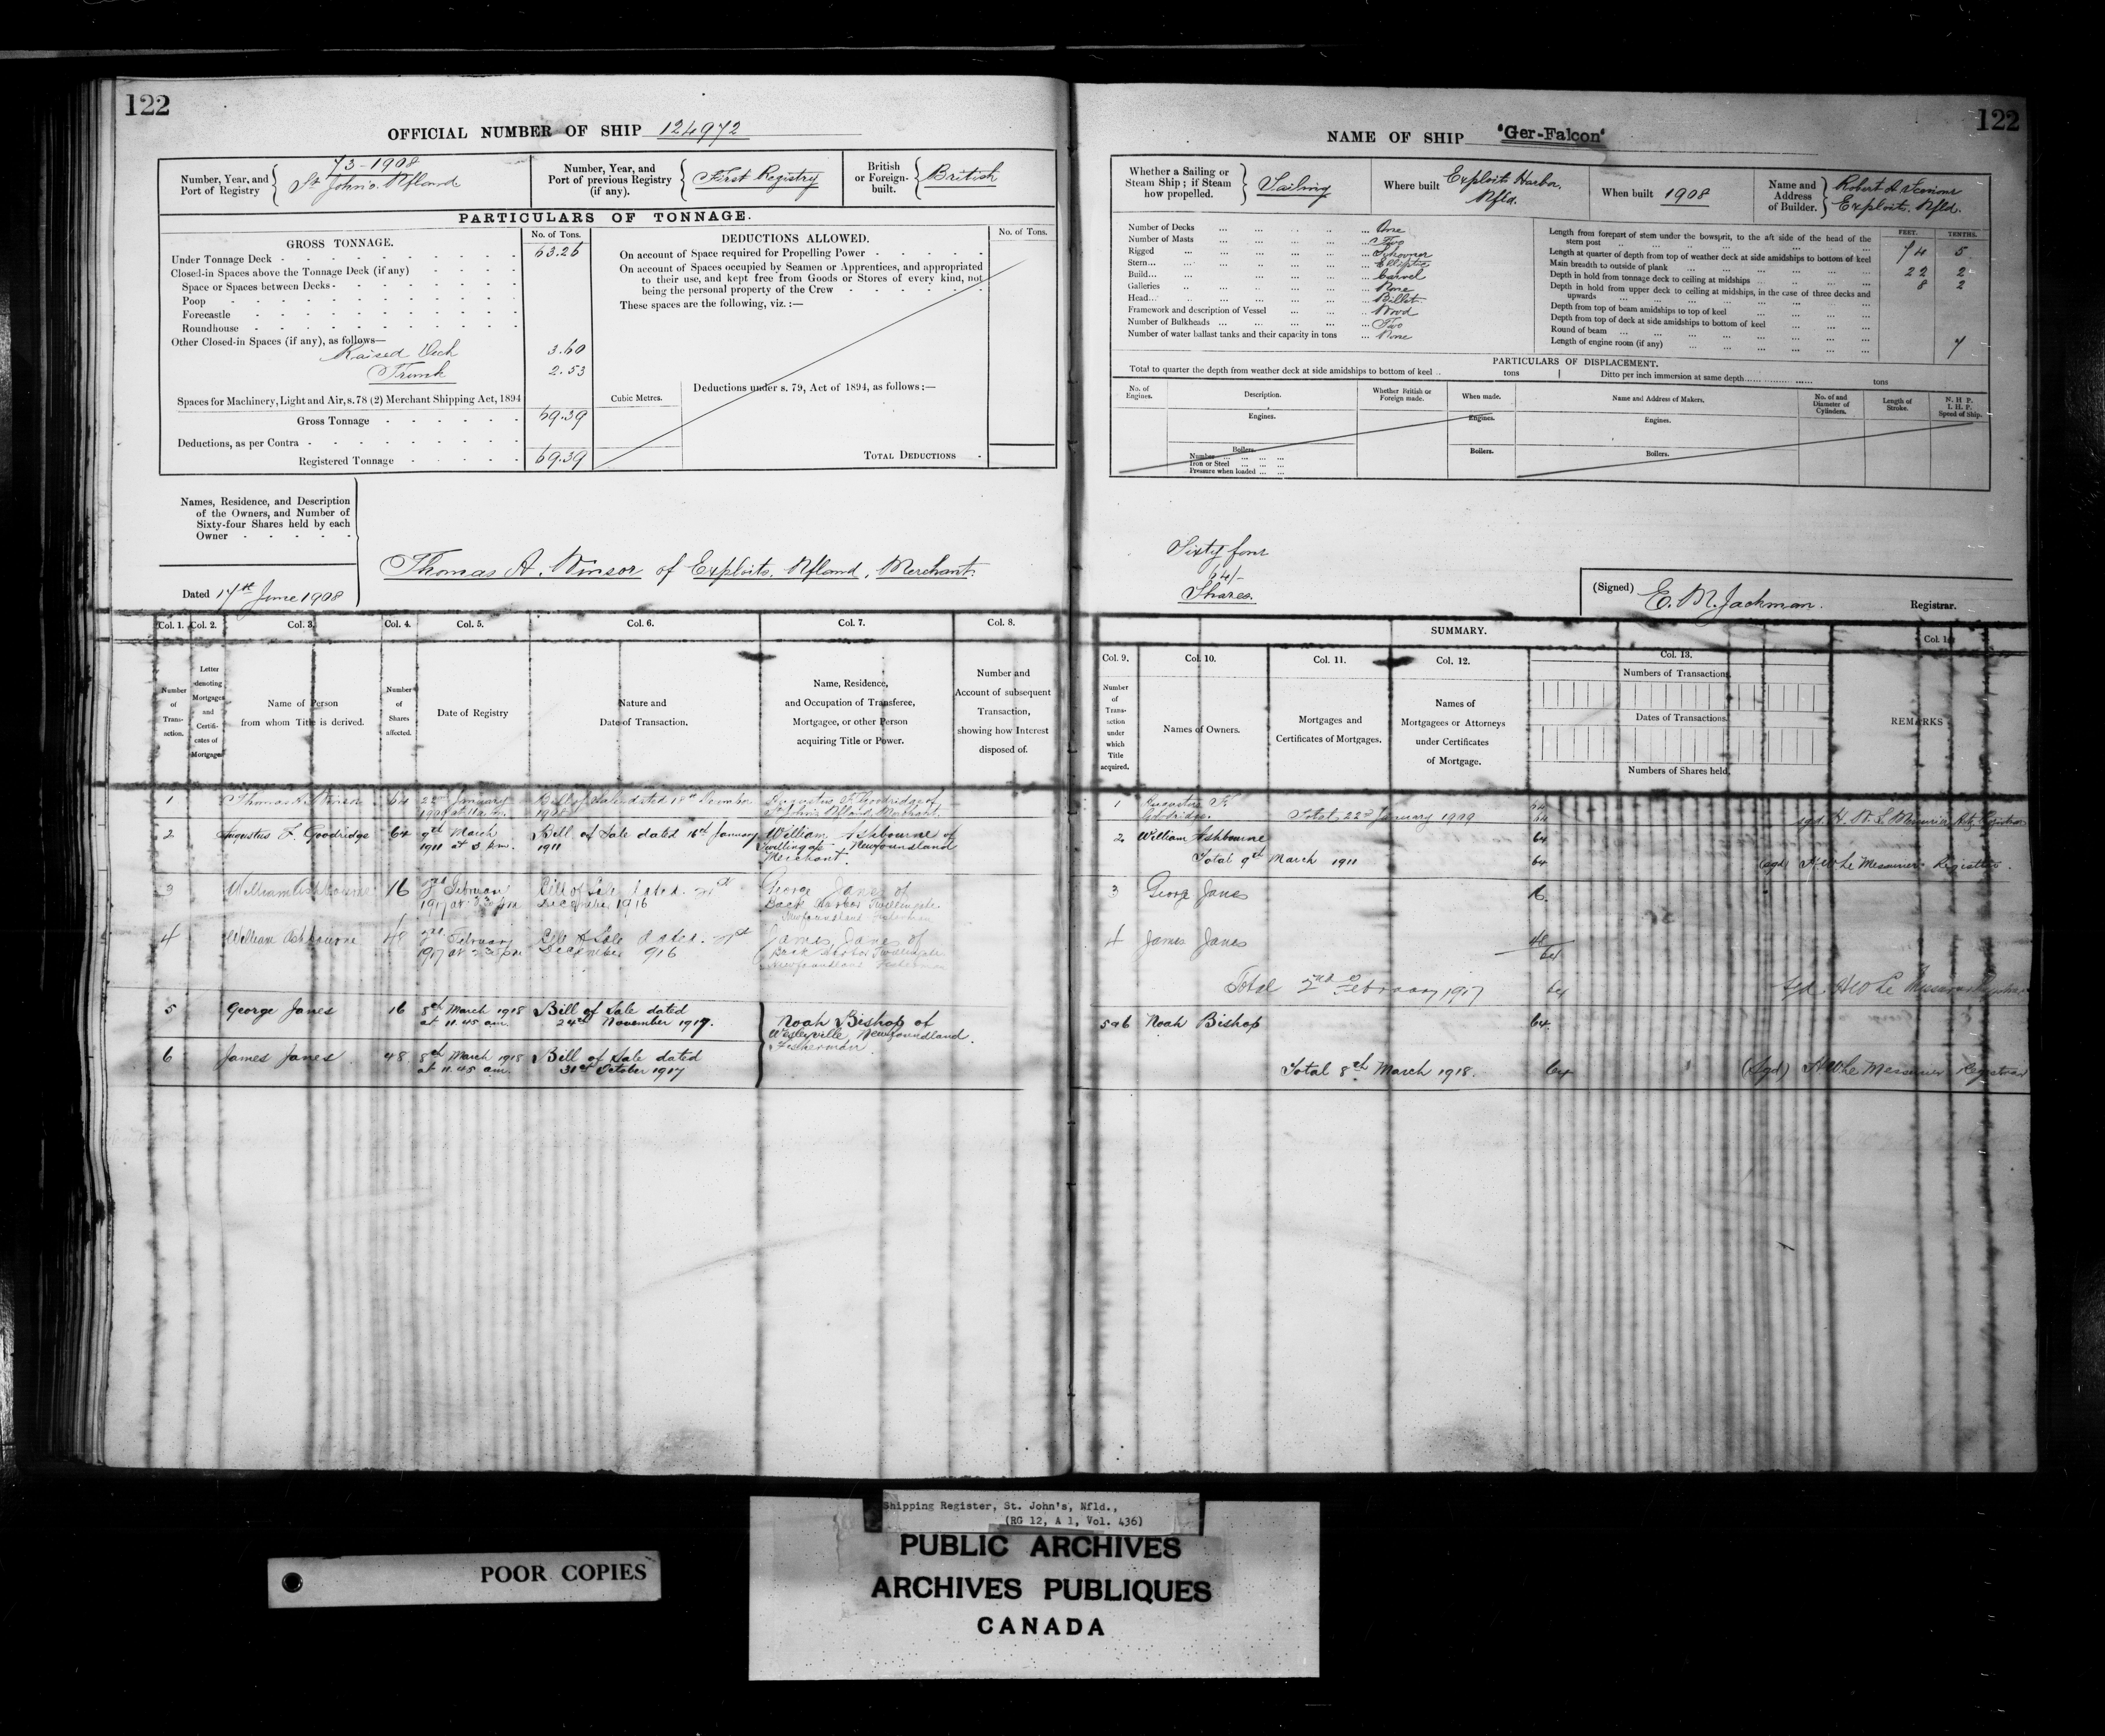 122
OFFICIAL NUMBER OF SHIP 124972
Number, Year, and Port of Registry
73-1908
St John's. Nfland
Number, Year, and Port of previous Registry (if any).
First Registry
British or Foreign-built.
British
PARTICULARS OF TONNAGE.
GROSS TONNAGE.
No. of Tons.
DEDUCTIONS ALLOWED.
No. of Tons.
Under Tonnage Deck 63.26
Closed-in Spaces above the Tonnage Deck (if any)
Space or Spaces between Decks
Poop
Forecastle
Roundhouse
Other Closed-in Spaces (if any), as follows—
Raised Deck 3.60
Trunk 2.53
Spaces for Machinery, Light and Air, s. 78 (2) Merchant Shipping Act, 1894
Gross Tonnage 69.39
Deductions, as per Contra
Registered Tonnage 69.39
On account of Space required for Propelling Power
On account of Spaces occupied by Seamen or Apprentices, and appropriated
to their use, and kept free from Goods or Stores of every kind, not
being the personal property of the Crew
These spaces are the following, viz.:—
Cubic Metres.
Deductions under s. 79, Act of 1894, as follows:—
TOTAL DEDUCTIONS
Names, Residence, and Description
of the Owners, and Number of
Sixty-four Shares held by each
Owner
Thomas A. Winsor of Exploits. Nfland. Merchant.
Dated 17th June 1908
Col. 1. Col. 2. Col. 3. Col. 4. Col. 5. Col. 6. Col. 7. Col. 8.
Number of Transaction.
Letter denoting Mortgages and Certificates of Mortgage
Name of Person from whom Title is derived.
Number of Shares affected.
Date of Registry
Nature and Date of Transaction.
Name, Residence, and Occupation of Transferee, Mortgagee, or other Person acquiring Title or Power.
Number and Account of subsequent Transaction, showing how Interest disposed of.
1 Thomas A. Winsor 64 22nd January Bill of Sale dated 18th Augustus F. Goodridge of
1909 1908 St John's Nfland, Merchant.
2 Augustus F. Goodridge 64 9th March Bill of Sale dated 16th January William Ashbourne of
1911 at 3 p.m. 1911 Twillingate Newfoundland
Merchant.
3 William Ashbourne 16 2nd February Bill of Sale dated 21st George Janes of
1917 at pm December 1916 Back Harbor Twillingate
Newfoundland Fisherman
4 William Ashbourne 48 2nd February Bill of Sale dated 21st James Janes of
1917 at pm December 1916 Back Harbor Twillingate
Newfoundland Fisherman
5 George Janes 16 8th March 1918 Bill of Sale dated
at 11.45 am. 24th November 1917.
Noah Bishop of
Wesleyville Newfoundland.
Fisherman
6 James Janes 48. 8th March 1918 Bill of Sale dated
at 11.45 am. 31st October 1917
122
NAME OF SHIP "Ger-Falcon"
Whether a Sailing or Steam Ship; if Steam how propelled.
Sailing
Where built Exploits Harbor. Nfld.
When built 1908
Name and Address of Builder.
Robert A
Exploits. Nfld.
Number of Decks One
Number of Masts Two
Rigged Schooner
Stern Elliptic
Build Carvel
Galleries None
Head Billet
Framework and description of Vessel Wood
Number of Bulkheads Two
Number of water ballast tanks and their capacity in tons None
FEET. TENTHS.
Length from forepart of stem under the bowsprit, to the aft side of the head of the
stern post 74 5
Length at quarter of depth from top of weather deck at side amidships to bottom of keel
Main breadth to outside of plank 22 2
Depth in hold from tonnage deck to ceiling at midships 8 2
Depth in hold from upper deck to ceiling at midships, in the case of three decks and
upwards
Depth from top of beam amidships to top of keel
Depth from top of deck at side amidships to bottom of keel
Round of beam 7
Length of engine room (if any)
PARTICULARS OF DISPLACEMENT.
Total to quarter the depth from weather deck at side amidships to bottom of keel tons Ditto per inch immersion at same depth tons
No. of Engines.
Description.
Whether British or Foreign made.
When made.
Name and Address of Makers.
No. of and Diameter of Cylinders.
Length of Stroke.
N. H P. I. H. P. Speed of Ship.
Engines. Engines. Engines.
Boilers. Boilers. Boilers.
Number
Iron or Steel
Pressure when loaded
Sixty four
64/-
Shares.
(Signed) E. M. Jackman. Registrar.
SUMMARY.
Col. 9. Col. 10. Col. 11. Col. 12. Col. 13. Col. 14
Number of Transaction under which Title acquired.
Names of Owners.
Mortgages and Certificates of Mortgages.
Names of Mortgagees or Attorneys under Certificates of Mortgage.
Numbers of Transactions.
Dates of Transactions.
Numbers of Shares held.
REMARKS
1 Augustus F. Goodridge. 64
Total 22nd January 1909 64 sgd. H. W. Le Messurier Registrar
2 William Ashbourne 64
Total 9th March 1911 64 (sgd) H W Le Messurier Registrar.
3 George Janes 16.
4 James Janes 48
64
Total 2nd February 1917 64 sgd. H W Le Messurier Registrar
5 & 6 Noah Bishop 64.
Total 8th March 1918. 64 (Sgd) H W Le Messurier Registrar
Shipping Register, St. John's, Nfld.,
(RG 12, A 1, Vol. 436)
PUBLIC ARCHIVES
ARCHIVES PUBLIQUES
CANADA
POOR COPIES